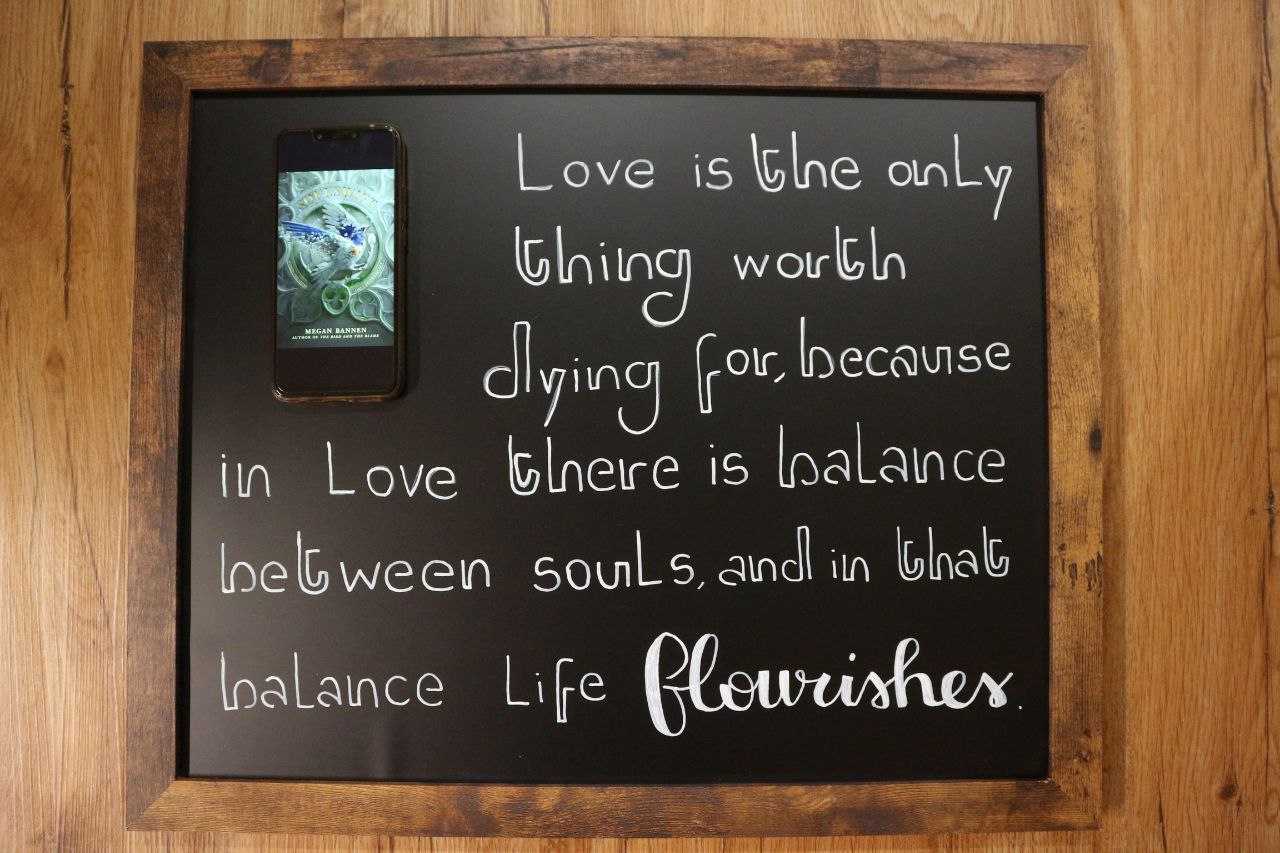 Love is the only
thing worth
dying for, because
in Love there is balance
between souls, and in that
balance Life flourishes.
MEGAN BANNEN
AUTHOR OF THE BIRD AND THE BLADE